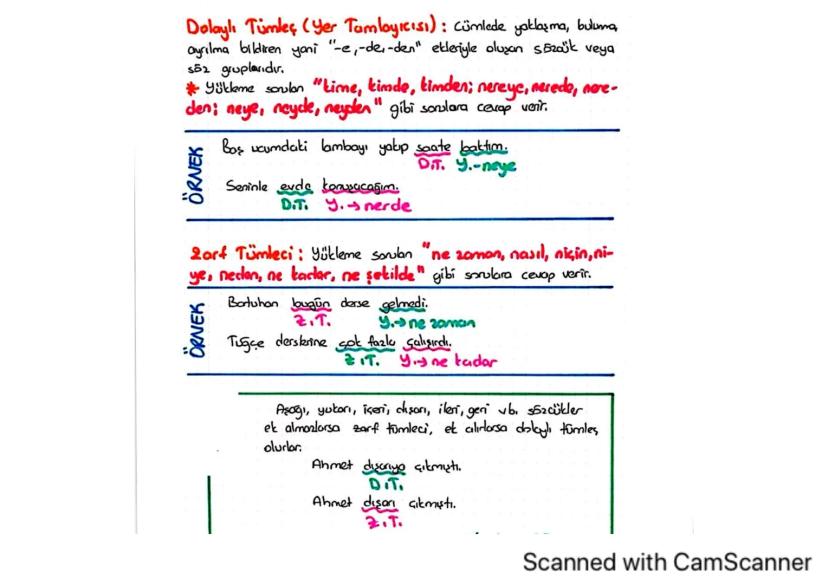 Dolaylı Tümleç (Yer Tamlayıcısı) : Cümlede yaklaşma, bulunma,
ayrılma bildiren yani "-e, -de, -den" ekleriyle oluşan sözcük veya
söz gruplarıdır.
* Yükleme sorulan "kime, kimde, kimden; nereye, nerede, nere-
den; neye, neyde, neyden" gibi sorulara cevap verir.
ÖRNEK
Baş ucumdaki lambayı yakıp saate baktım.
D.T. Y.-neye
Seninle evde konuşacağım.
D.T. Y.→nerde
Zarf Tümleci : Yükleme sorulan "ne zaman, nasıl, niçin, ni-
ye, neden, ne kadar, ne şekilde" gibi sorulara cevap verir.
ÖRNEK
Bartuhan bugün derse gelmedi.
Z.T. Y.→ne zaman
Tuğçe derslerine çok fazla çalışırdı.
Z.T. Y.→ne kadar
Aşağı, yukarı, içeri, dışarı, ileri, geri vb. sözcükler
ek almazlarsa zarf tümleci, ek alırlarsa dolaylı tümleç
olurlar.
Ahmet dışarıya çıkmıştı.
D.T.
Ahmet dışarı çıkmıştı.
Z.T.
Scanned with CamScanner